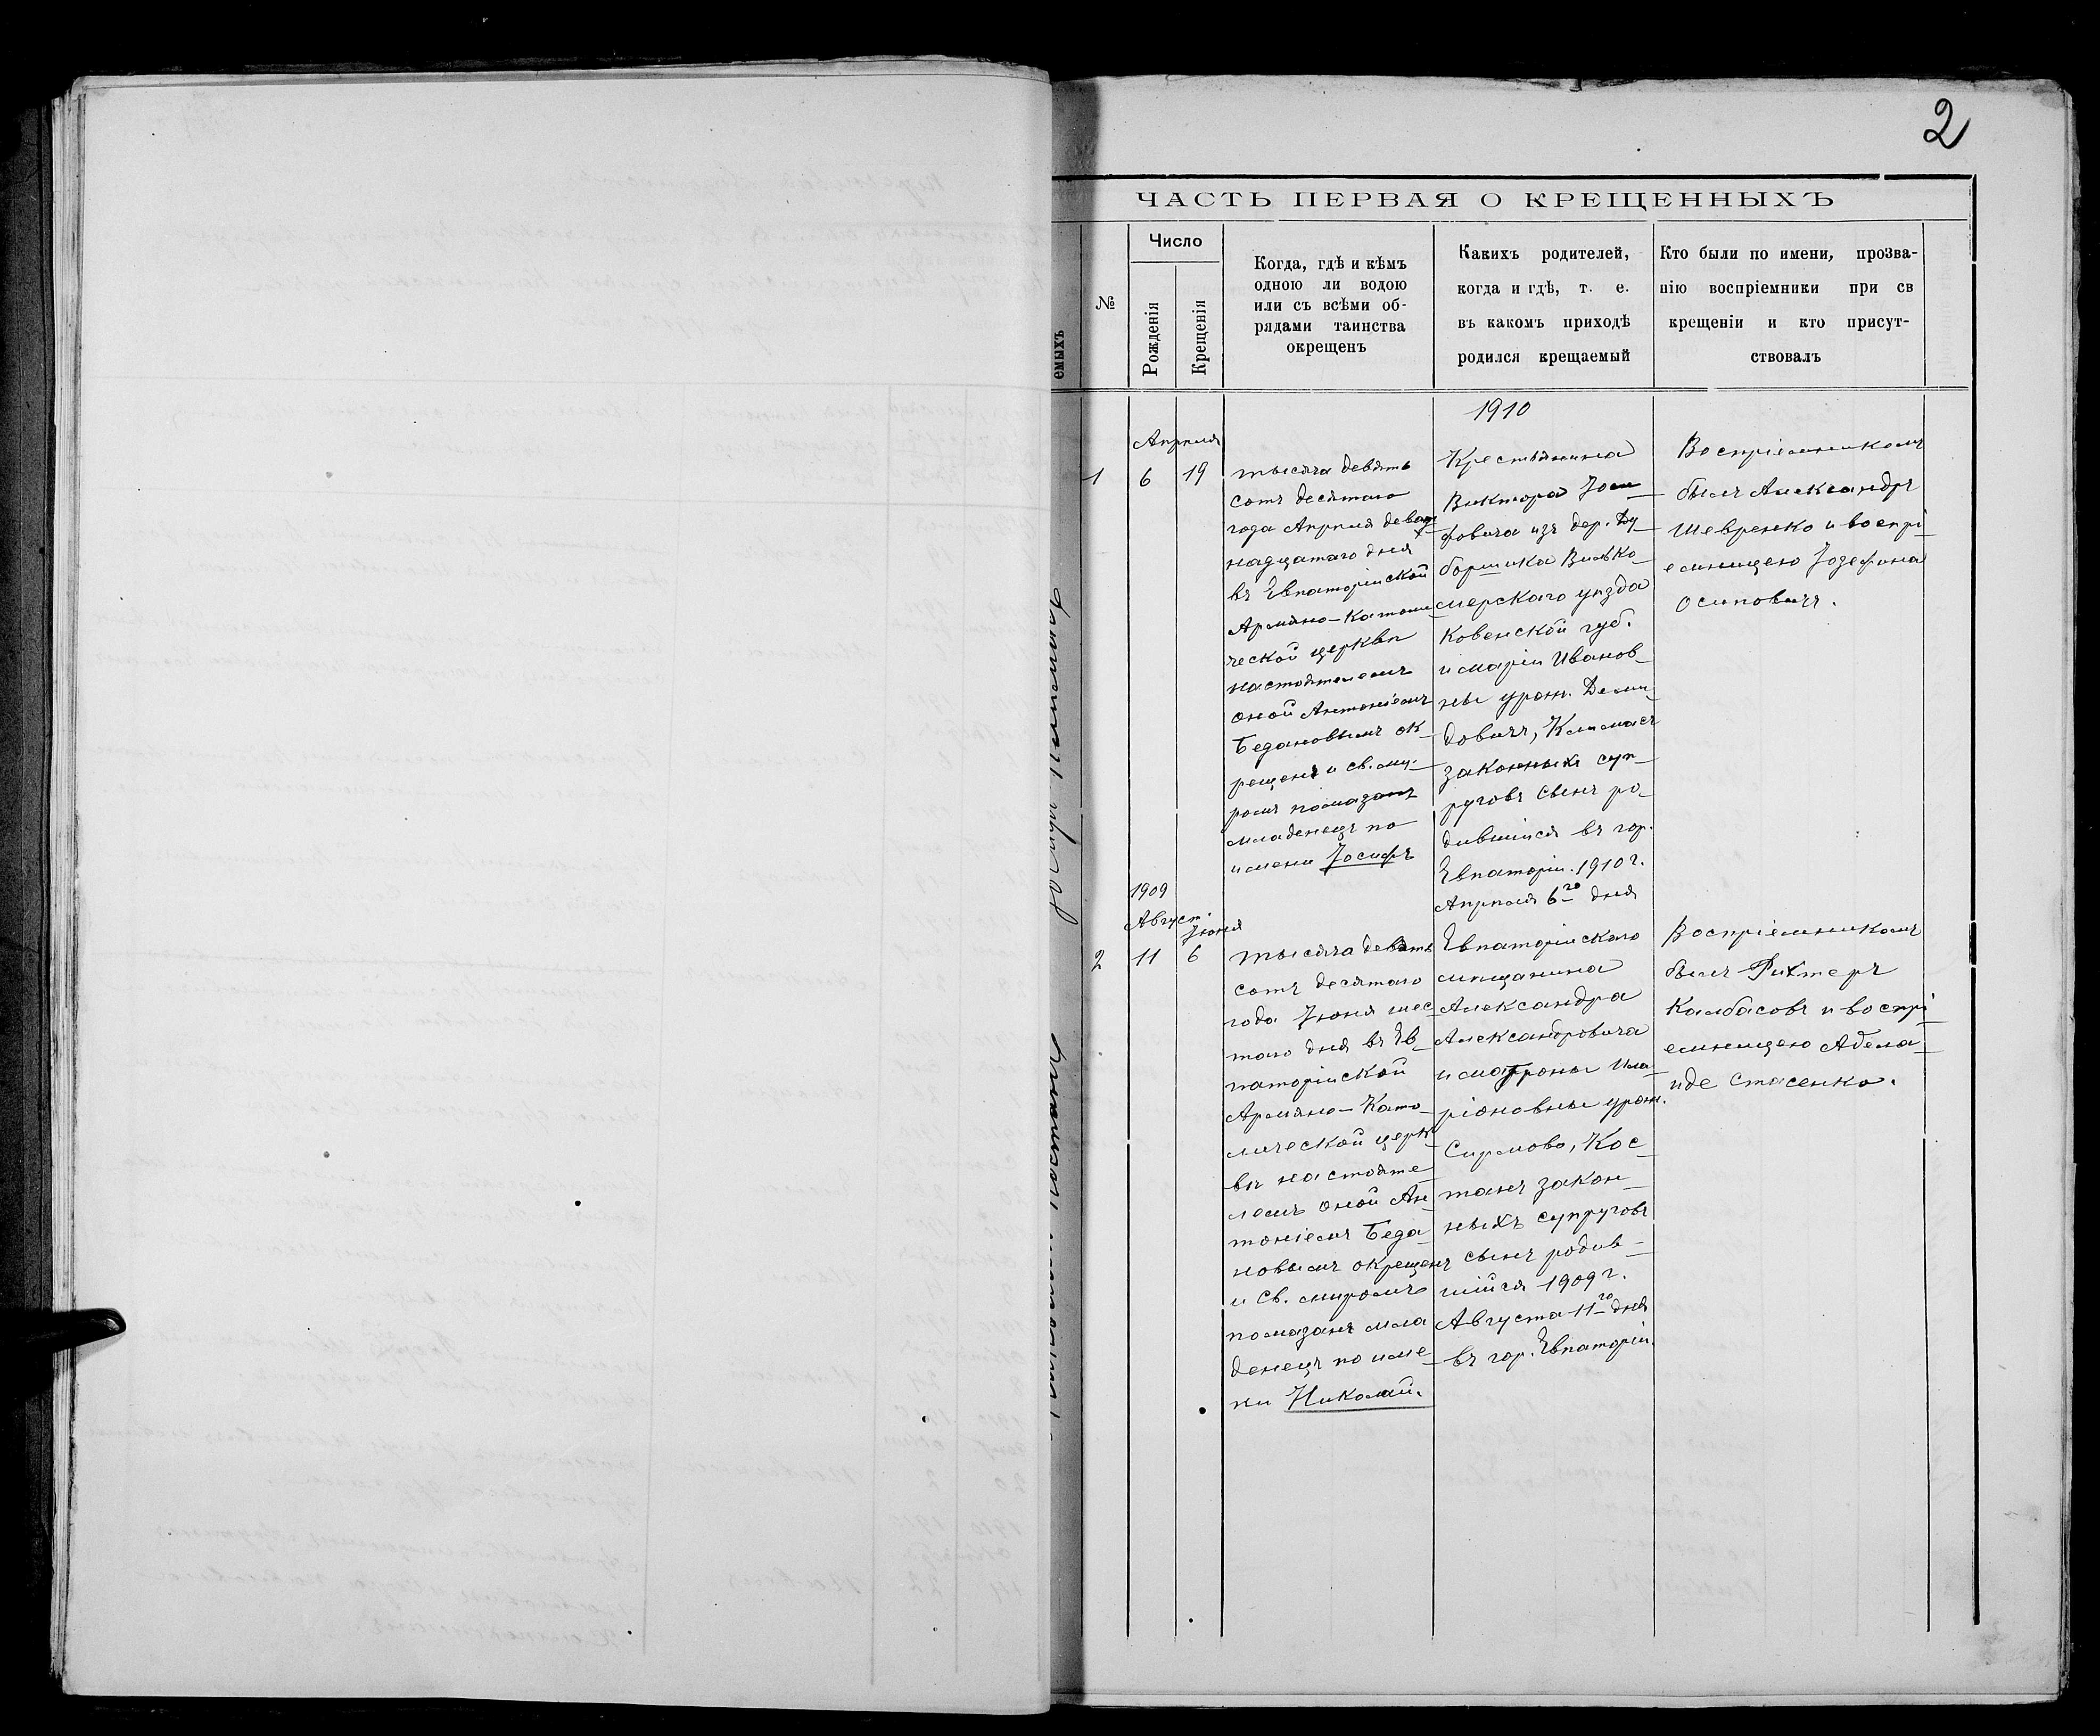 2
ЧАСТЬ ПЕРВАЯ О КРЕЩЕННЫХЪ
емыхъ
№
Число
Рожденія
Крещенія
Когда, гдѣ и кѣмъ
одною ли водою
или съ всѣми об-
рядами таинства
окрещенъ
Какихъ родителей,
когда и гдѣ, т. е.
въ какомъ приходѣ
родился крещаемый
Кто были по имени, прозва-
нію воспріемники при св
крещеніи и кто присут-
ствовалъ
1910
Апрѣля
1
6
19
тысяча девять
сотъ десятаго
года Апрѣля девят
надцатаго дня
въ Евпаторійской
Армяно-Католи
ческой церкви
настоятелемъ
оной Антоніемъ
Бедановымъ ок
рещенъ и св. му-
ромъ помазанъ
младенецъ по
имени Іосифъ
Крестьянина
Виктора Іоси
фовича изъ дер. Ду
боришка Вилько
мерскаго уѣзда
Ковенской губ.
и Маріи Иванов
ны урож. Деми
довичъ, Климасъ
законныхъ суп
руговъ сынъ ро
дившійся въ гор.
Евпаторіи. 1910 г.
Апрѣля 6го дня
Воспріемникомъ
былъ Александръ
Шевренко и воспрі
емницею Іозефина
Осиповичъ.
1909
Август
Іюня
2
11
6
тысяча девять
сотъ десятаго
года Іюня шес
таго дня въ Ев
паторійской
Армяно-Като
лической церк
ви настояте
лемъ оной Ан
тоніемъ Беда
новымъ окрещенъ
и св. миромъ
помазанъ мла
денецъ по име
ни Николай.
Евпаторійскаго
мѣщанина
Александра
Александровича
и Матроны Ила
ріоновны урож.
Сирмово, Кос
танъ закон
ныхъ супруговъ
сынъ родив
шійся 1909 г.
Августа 11го дня
въ гор. Евпаторіи.
Воспріемникомъ
былъ Рихтеръ
Калбасовъ и воспрі
емницею Адела
иде Стасенко.